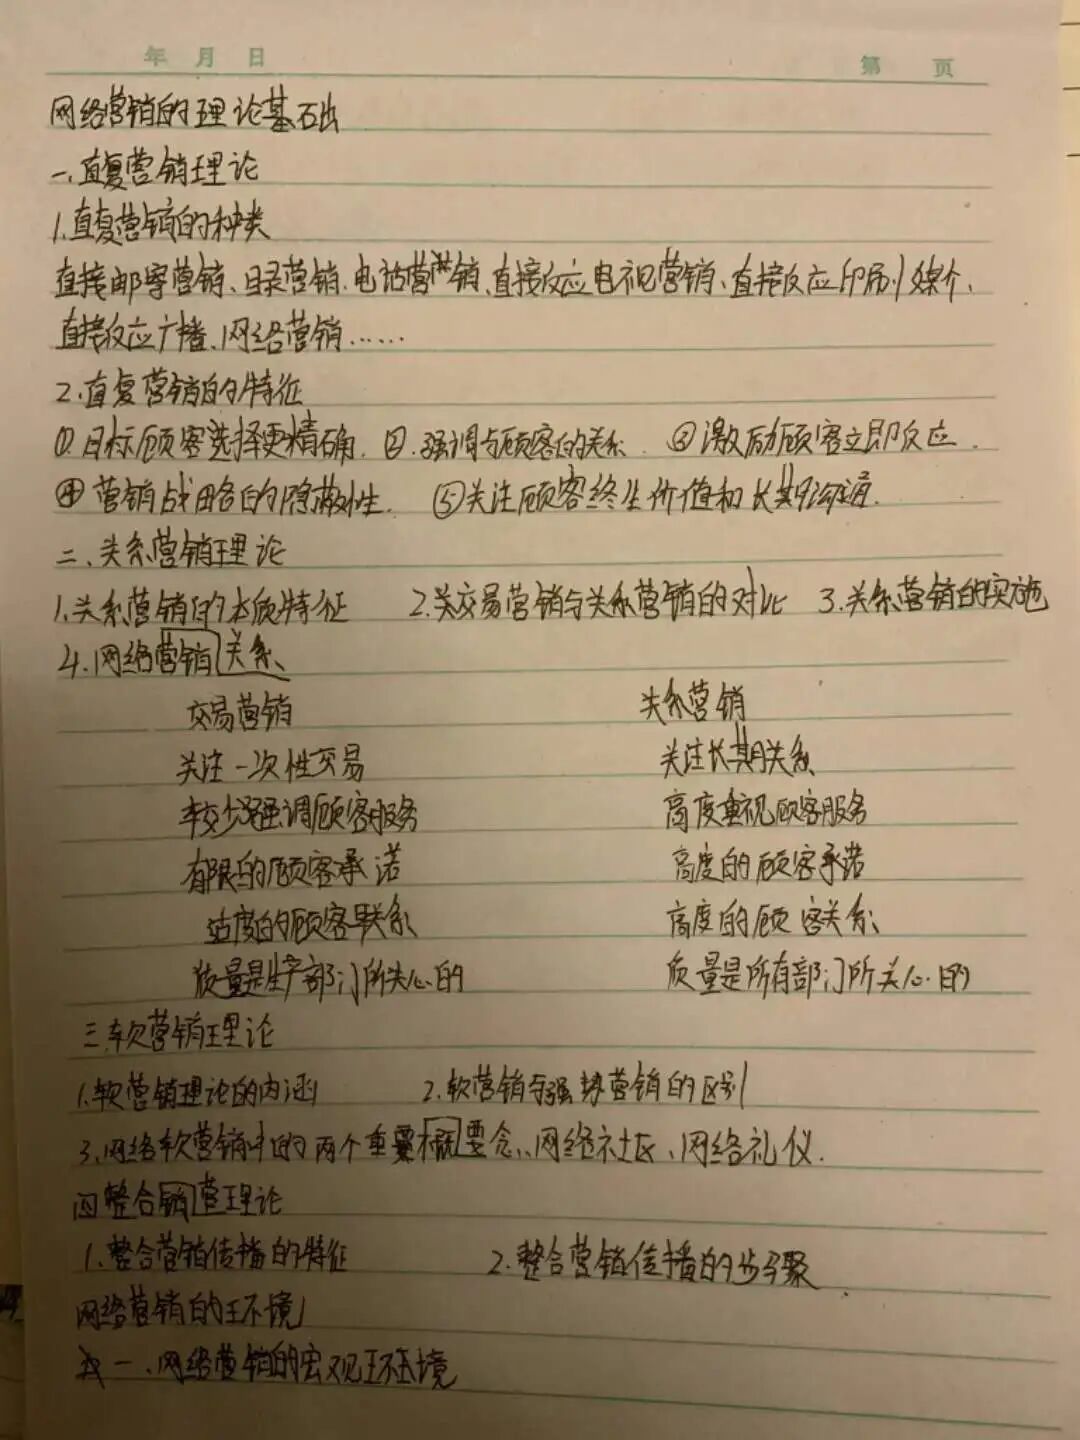 年 月 日 第 页
网络营销的理论基础
一、直复营销理论
1.直复营销的种类
直接邮寄营销、目录营销、电话营销、直接反应电视营销、直接反应印刷媒介、
直接反应广播、网络营销……
2.直复营销的特征
①目标顾客选择更精确. ②.强调与顾客的关系. ③激励顾客立即反应.
④营销战略的隐蔽性. ⑤关注顾客终生价值和长期沟通.
二、关系营销理论
1.关系营销的本质特征 2.关交易营销与关系营销的对比 3.关系营销的实施
4.网络营销关系
交易营销 关系营销
关注一次性交易 关注长期关系
较少强调顾客服务 高度重视顾客服务
有限的顾客承诺 高度的顾客承诺
适度的顾客联系 高度的顾客关系
质量是生产部门所关心的 质量是所有部门所关心的
三.软营销理论
1.软营销理论的内涵 2.软营销与强势营销的区别
3.网络软营销中的两个重要概念、网络社区、网络礼仪.
四整合销营理论
1.整合营销传播的特征 2.整合营销传播的步骤
网络营销的环境
一、网络营销的宏观环境